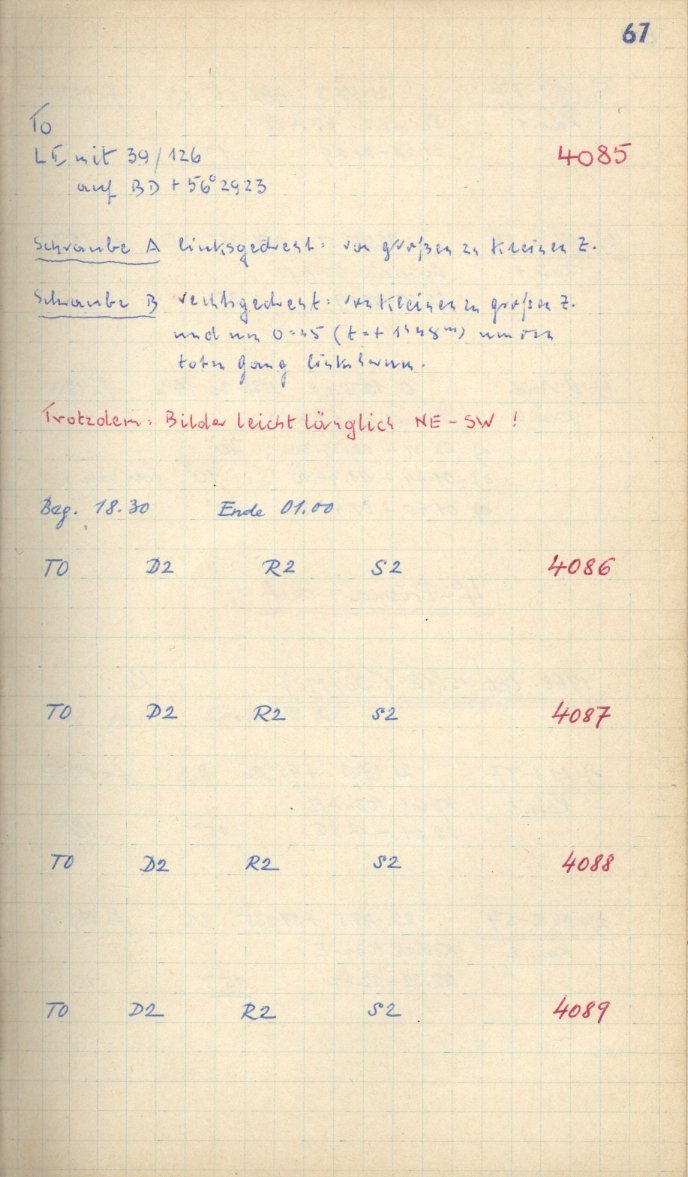 67
To
mit 39/126 4085
auf BD + 56° 2923
Schraube A linksgedreht: von großen zu kleinen Z.
Schraube B rechtsgedreht: von kleinen zu großen Z.
und um (t=+1ʰ48ᵐ) um den
toten Gang linksherum.
Trotzdem: Bilder leicht länglich NE-SW!
Beg. 18.30 Ende 01.00
TO D2 R2 S2 4086
TO D2 R2 S2 4087
TO D2 R2 S2 4088
TO D2 R2 S2 4089